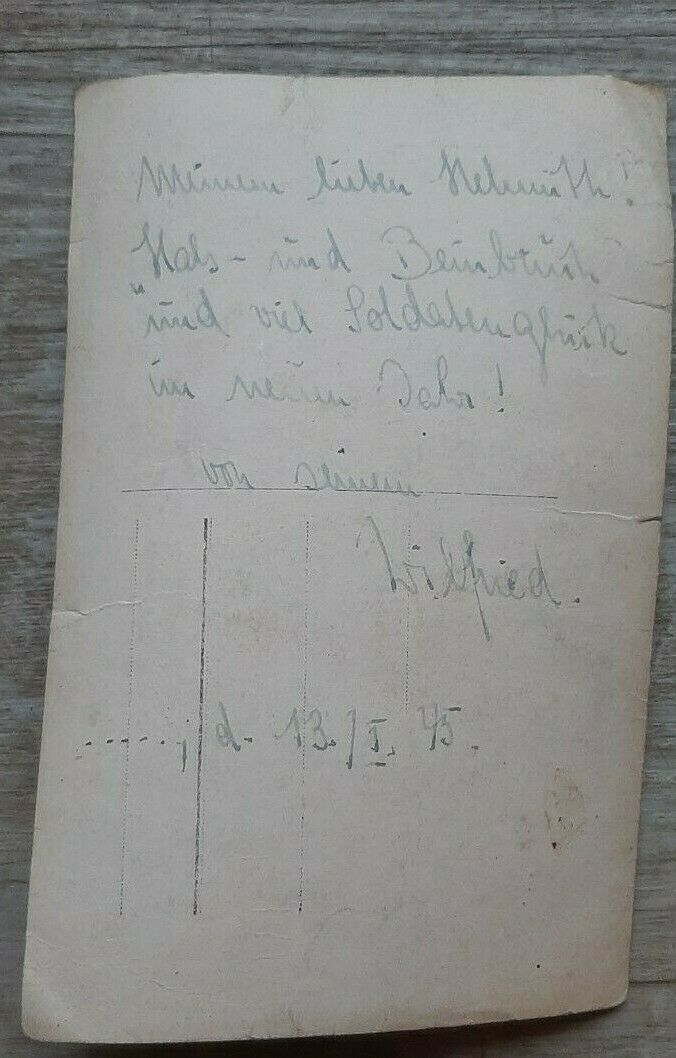 Meinem lieben Helmuth!
Hals- und Beinbruch
"und viel Soldatenglück
im neuen Jahr!
von seinem
Wilfried.
......, d. 13./I. 45.